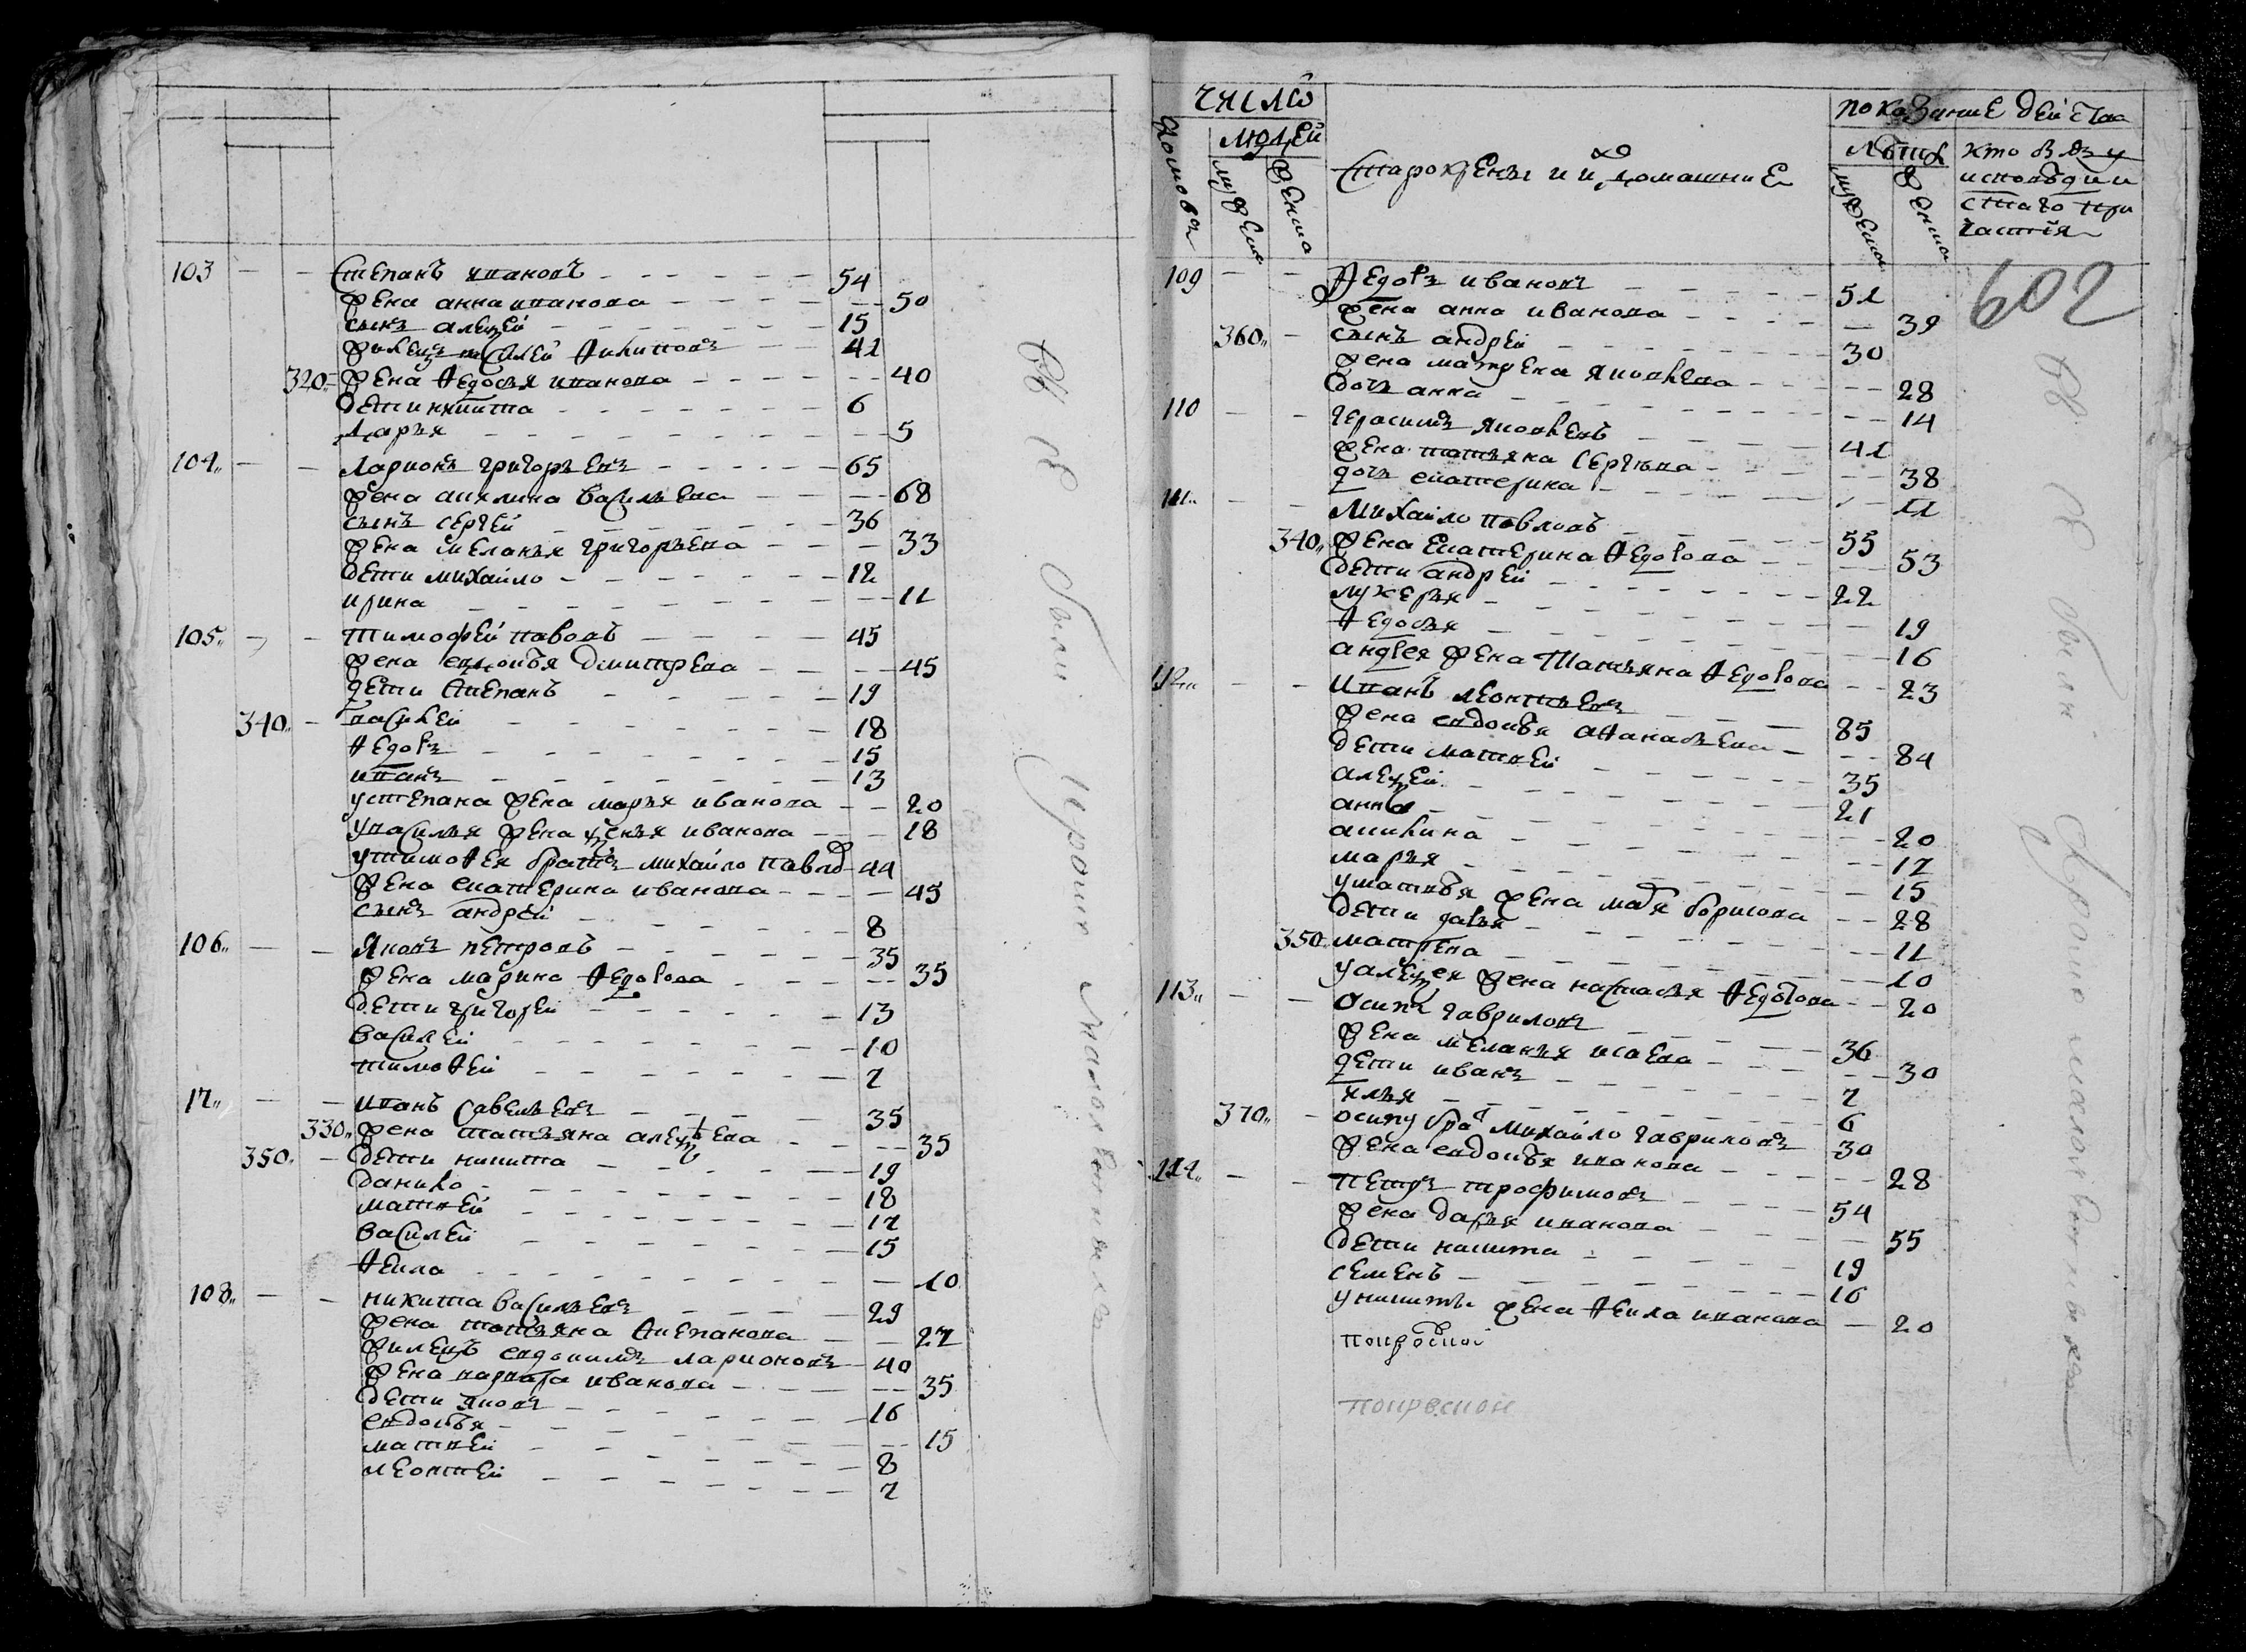 103 Степанъ ивановъ 54
жена анна иванова 50
сынъ алеѯей 15
жилецъ василей Ѳилиповъ 41
320 жена Ѳедосья иванова 40
дети никита 6
дарья 5
104 Ларионъ григорьевъ 65
жена акилина васильева 68
сынъ сергей 36
жена меланья григорьева 33
дети михайло 12
ирина 11
105 Тимофей павловъ 45
жена евдокѣя дмитрева 45
дети Степанъ 19
340 василей 18
Ѳедоръ 15
иванъ 13
у степана жена марья иванова 20
у василья жена ѯенья иванова 18
у тимоѲея братъ михайло павлов 44
жена екатерина иванова 45
сынъ андрей 8
106 Яковъ петровъ 35
жена марина Ѳедорова 35
дети григорей 13
василей 10
тимоѲей 7
17 Иванъ савельевъ 35
330 жена татьяна алеѯѣева 35
350 дети никита 19
данило 18
матвей 17
василей 15
Ѳекла 10
108 никита васильевъ 29
жена татьяна степанова 27
жилецъ евдокимъ ларионовъ 40
жена варвара иванова 35
дети яковъ 16
евдокѣя 15
матвей 8
леонтей 7
всѣ сѣ были у крошо малолетныхъ
число
домовъ
людей
мужеска
женска
Старокрены и их домашние
показание действа
лѣтъ
мужеска
женска
кто былъ у
исповѣди и
стаго при
частия
602
109 Ѳедоръ ивановъ 51
жена анна иванова 39
360 сынъ андрей 30
жена матрена яковлева 28
дочь анна 14
110 герасимъ яковлевъ 41
жена татьяна сергѣева 38
дочь екатерина 11
111 Михайло павловъ 55
340 жена екатерина Ѳедорова 53
дети андрей 22
лукерья 19
Ѳедосья 16
андрея жена татьяна Ѳедорова 23
112 Иванъ леонтьевъ 85
жена евдокѣя аѲанасьева 84
дети матвей 35
алеѯей 21
анна 20
акилина 17
марья 15
у матвѣя жена марья борисова 28
дети дарья 11
350 матрена 10
у алеѯея жена настасья Ѳедорова 20
113 Осипъ гавриловъ 36
жена меланья исаева 30
дети иванъ 7
илья 6
370 осипу брат михайло гавриловъ 30
жена евдокѣя иванова 28
114 Петръ трофимовъ 54
жена дарья иванова 55
дети никита 19
семенъ 16
у никиты жена Ѳекла иванова 20
покровской
покровской